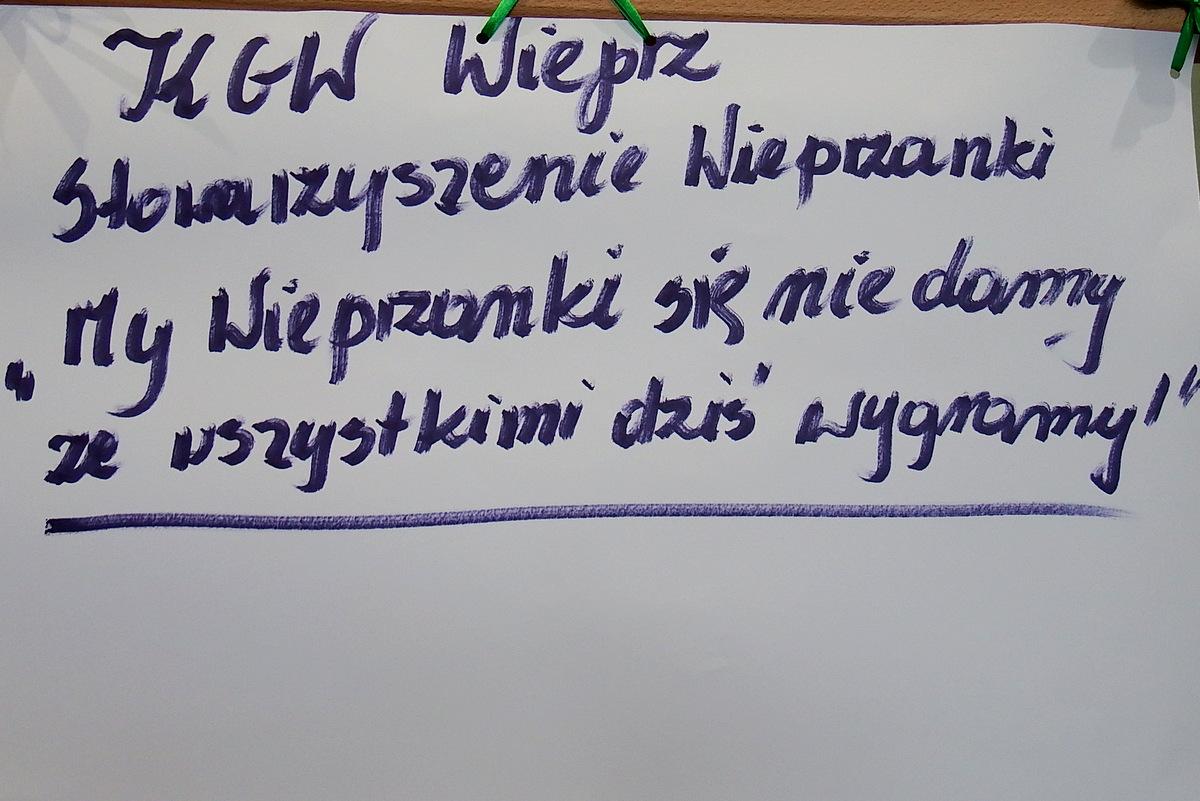 KGW Wieprz
Stowarzyszenie Wieprzanki
My Wieprzanki się nie damy
"ze wszystkimi dziś wygramy!"